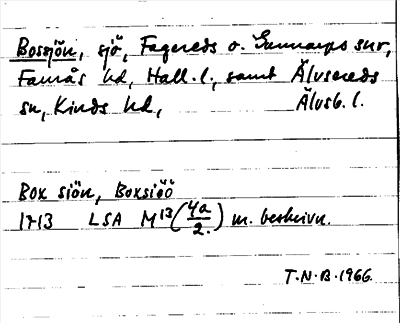 Bossjön, sjö, Fagereds o. Gunnarps snr,
Faurås hd, Hall. l., samt Älvsereds
sn, Kinds hd, Älvsb. l.
Box siön, Boxsiöö
1713 LSA M13 (4a/2.) m. beskrivn.
T.N.B. 1966